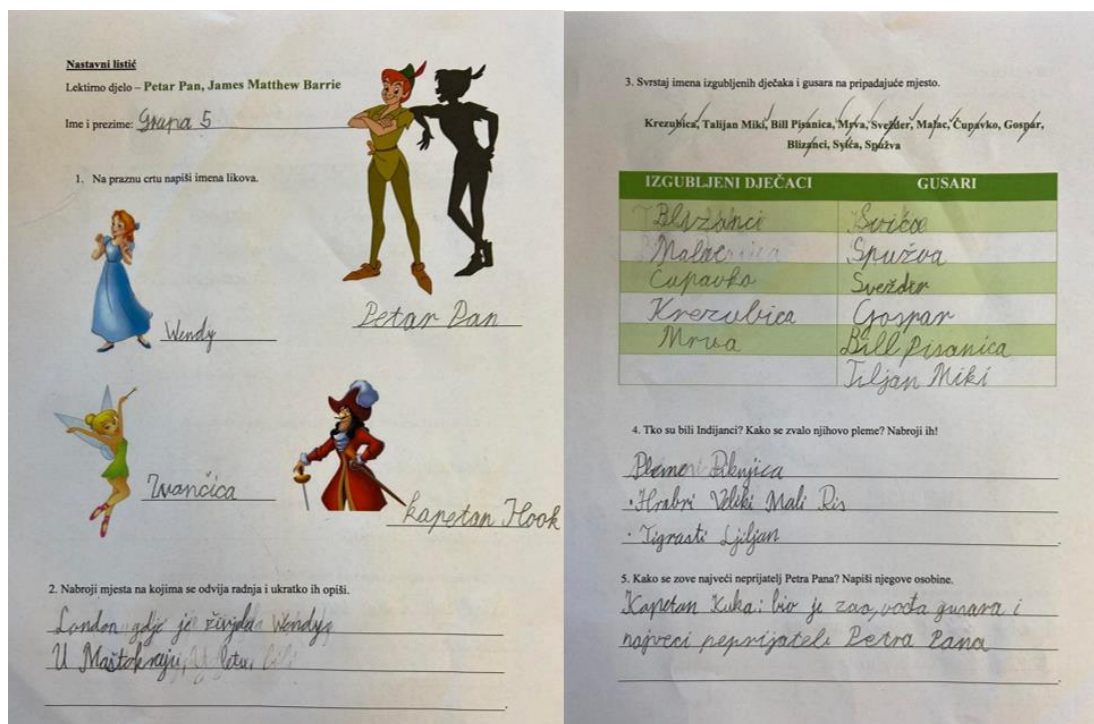 Nastavni listić
Lektirno djelo – Petar Pan, James Matthew Barrie
Ime i prezime: Grupa 5
1. Na praznu crtu napiši imena likova.
Wendy
Petar Pan
Zvančica
Kapetan Hook
2. Nabroji mjesta na kojima se odvija radnja i ukratko ih opiši.
London gdje je živjela Wendy
U Maštokraju,
3. Svrstaj imena izgubljenih dječaka i gusara na pripadajuće mjesto.
Krezubica, Talijan Miki, Bill Pisanica, Mrva, Svežder, Malac, Čupavko, Gospar,
Blizanci, Svića, Spužva
IZGUBLJENI DJEČACI GUSARI
Blizanci Svića
Malac Spužva
Cupavko Svežder
Krezubica Gospar
Mrva Bill Pisanica
Tiljan Miki
4. Tko su bili Indijanci? Kako se zvalo njihovo pleme? Nabroji ih!
Pleme
· Hrabri Veliki Mali Ris
· Tigrasti Ljiljan
5. Kako se zove najveći neprijatelj Petra Pana? Napiši njegove osobine.
Kapetan Kuka: bio je zao, vođa gusara i
najveci neprijatelj Petra Pana